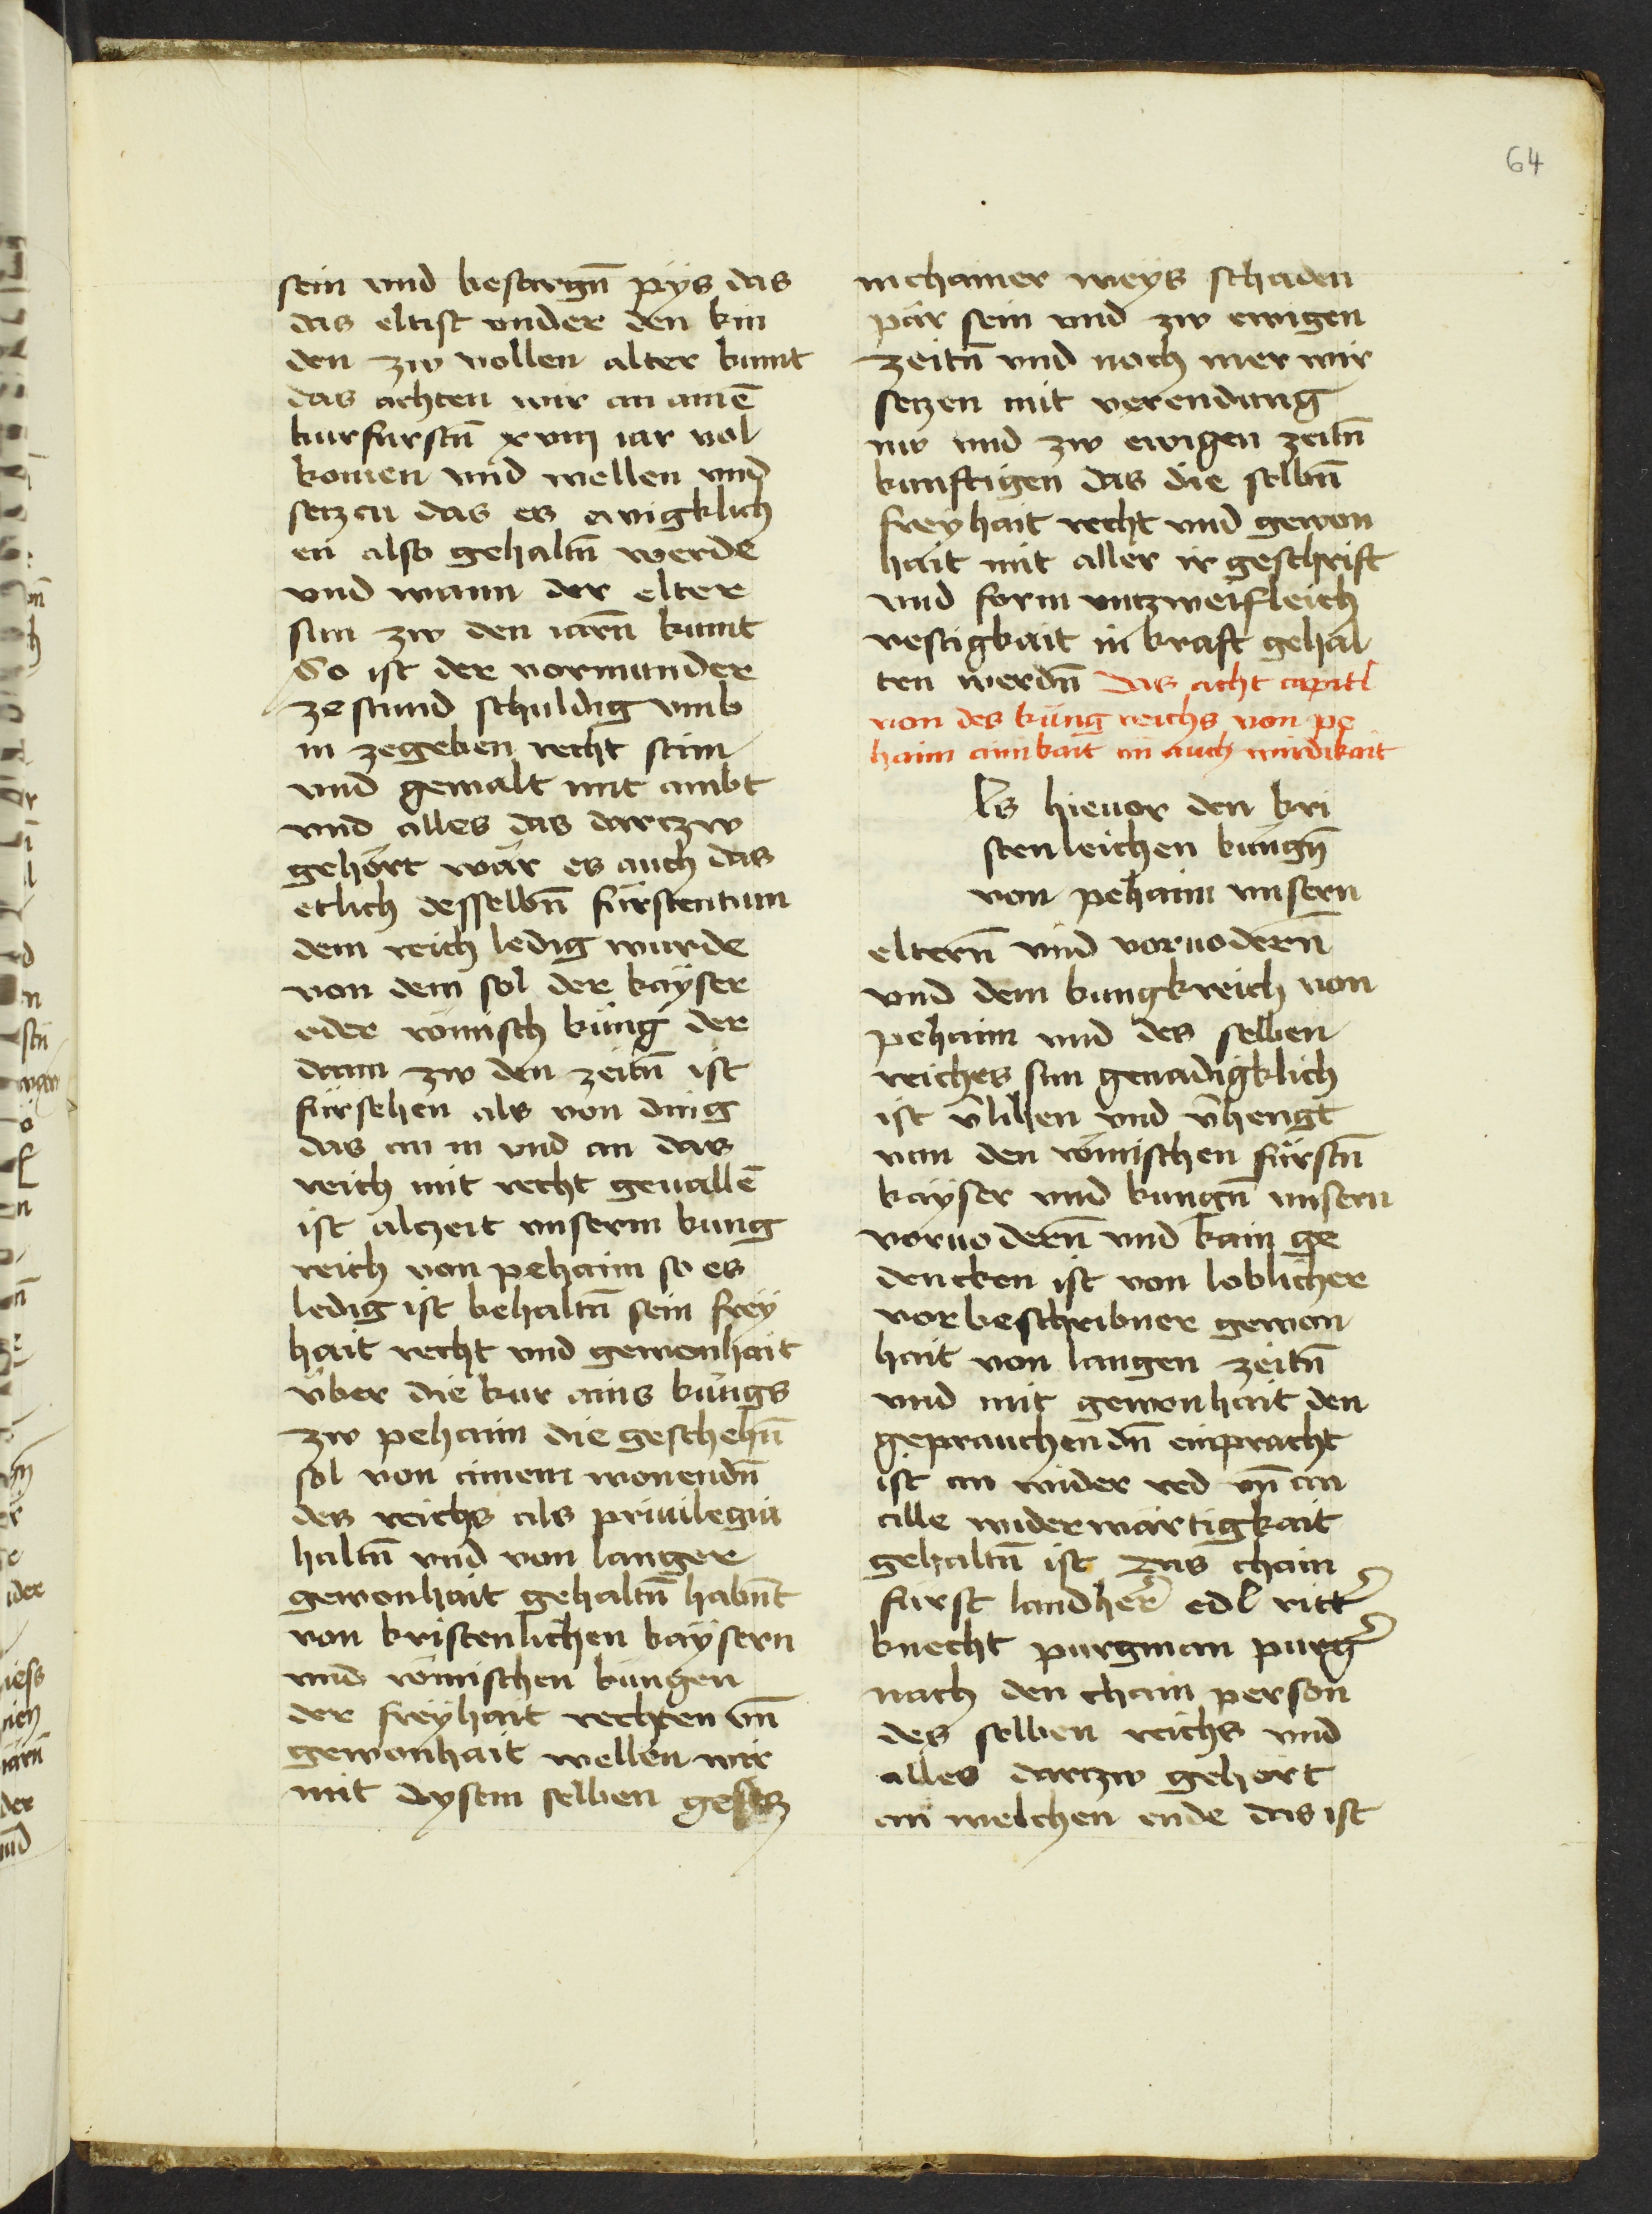 64
sein vnd besorgn̄ pÿs das
das eltist vnder den kin
den zw vollen alter kumt
das achten wir an ainē
kurfurstn̄ xviij iar vol
komen vnd wellen vnd
setzen das es ewigklich
en also gehaltn̄ werde
vnd wann der elter
sun zw den iarn̄ kumt
So ist der vormunder
ze stund schuldig vmb
in zegeben recht stim
vnd gewalt mit ambt
vnd alles das dartzw
gehört wär es auch das
etlich desselbn̄ fürstentum
dem reich ledig wurde
von dem sol der kayser
oder römisch küng der
dann zw den zeitn̄ ist
fürsehen als von ding
das an in vnd an das
reich mit recht geuallē
ist alczeit vnserm kung
reich von pehaim so es
ledig ist behaltn̄ sein freÿ
hait recht vnd gewonhait
über die kur ains küngs
zw pehaim die geschehn̄
sol von ainem wonendn̄
des reichs als priuilegia
haltn̄ vnd von langer
gewonhait gehaltn̄ habn̄t
von kristenlichen kaysern
vnd römischen küngen
der freÿhait rechten vn̄
gewonhait wellen wir
mit dysem selben gesetz
in chainer weÿs schaden
pär sein vnd zw ewigen
zeitn̄ vnd noch mer wir
setzen mit verendung
nw vnd zw ewigen zeitn̄
kunftigen das die selbn̄
freÿhait recht vnd gewon
hait mit aller ir geschrift
vnd form vntzweifleich
vestigkait in kraft gehal
ten werdn̄ Das acht capitl
von des küng reichs von pe
haim ainikait in auch wirdikait
ls hieuor den kri
stenleichen küngn̄
von pehaim vnsern
eltern̄ vnd voruodern̄
vnd dem kungkreich von
pehaim vnd des selben
reiches sun genadigklich
ist v̄lihen vnd v̄hengt
von den römischen fürstn̄
kayser vnd kungn̄ vnsern
voruodern̄ vnd kain ge
dencken ist von loblicher
vorbeschribner gewon
hait von langen zeitn̄
vnd mit gewonhait den
geprauchendn̄ einpracht
ist an wider red vn̄ an
alle widerwärtigkait
gehaltn̄ ist Das chain
fürst landher̄ edl ritt̄
knecht purgman purḡ
nach den chain person
des selben reichs vnd
alles dartzw gehört
an welchen ende das ist